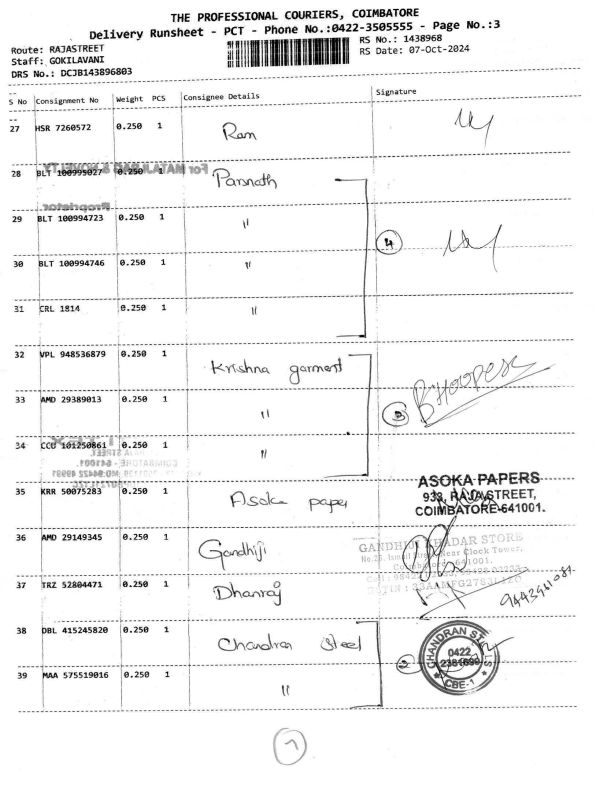 THE PROFESSIONAL COURIERS, COIMBATORE
Delivery Runsheet - PCT - Phone No.:0422-3505555 - Page No.:3
Route: RAJASTREET RS No.: 1438968
Staff: GOKILAVANI RS Date: 07-Oct-2024
DRS No.: DCJB143896803
S No Consignment No Weight PCS Consignee Details Signature
27 HSR 7260572 0.250 1 Ram
28 BLT 100995027 0.250 1 Parsnath
For MATAJI BAG & NOVELTY
Proprietor
29 BLT 100994723 0.250 1 "
4
30 BLT 100994746 0.250 1 "
31 CRL 1814 0.250 1 "
32 VPL 948536879 0.250 1 Krishna garment
33 AMD 29389013 0.250 1 " 3 Bhoopesh
34 CCU 101250861 0.250 1 "
35 KRR 50075283 0.250 1 Asoka paper
ASOKA PAPERS
933, RAJA STREET,
COIMBATORE-641001.
36 AMD 29149345 0.250 1 Gandhiji
GANDHIJI KHADAR STORE
Near Clock Tower,
Coimbatore - 641001.
37 TRZ 52804471 0.250 1 Dhanraj
38 DBL 415245820 0.250 1 Chandran Steel
2
CHANDRAN
0422
2381699
CBE-1
39 MAA 575519016 0.250 1 "
7